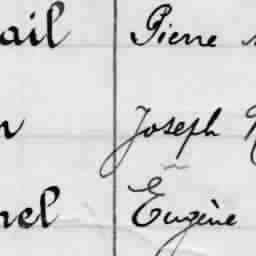 ail Pierre
n Joseph
nel Eugène